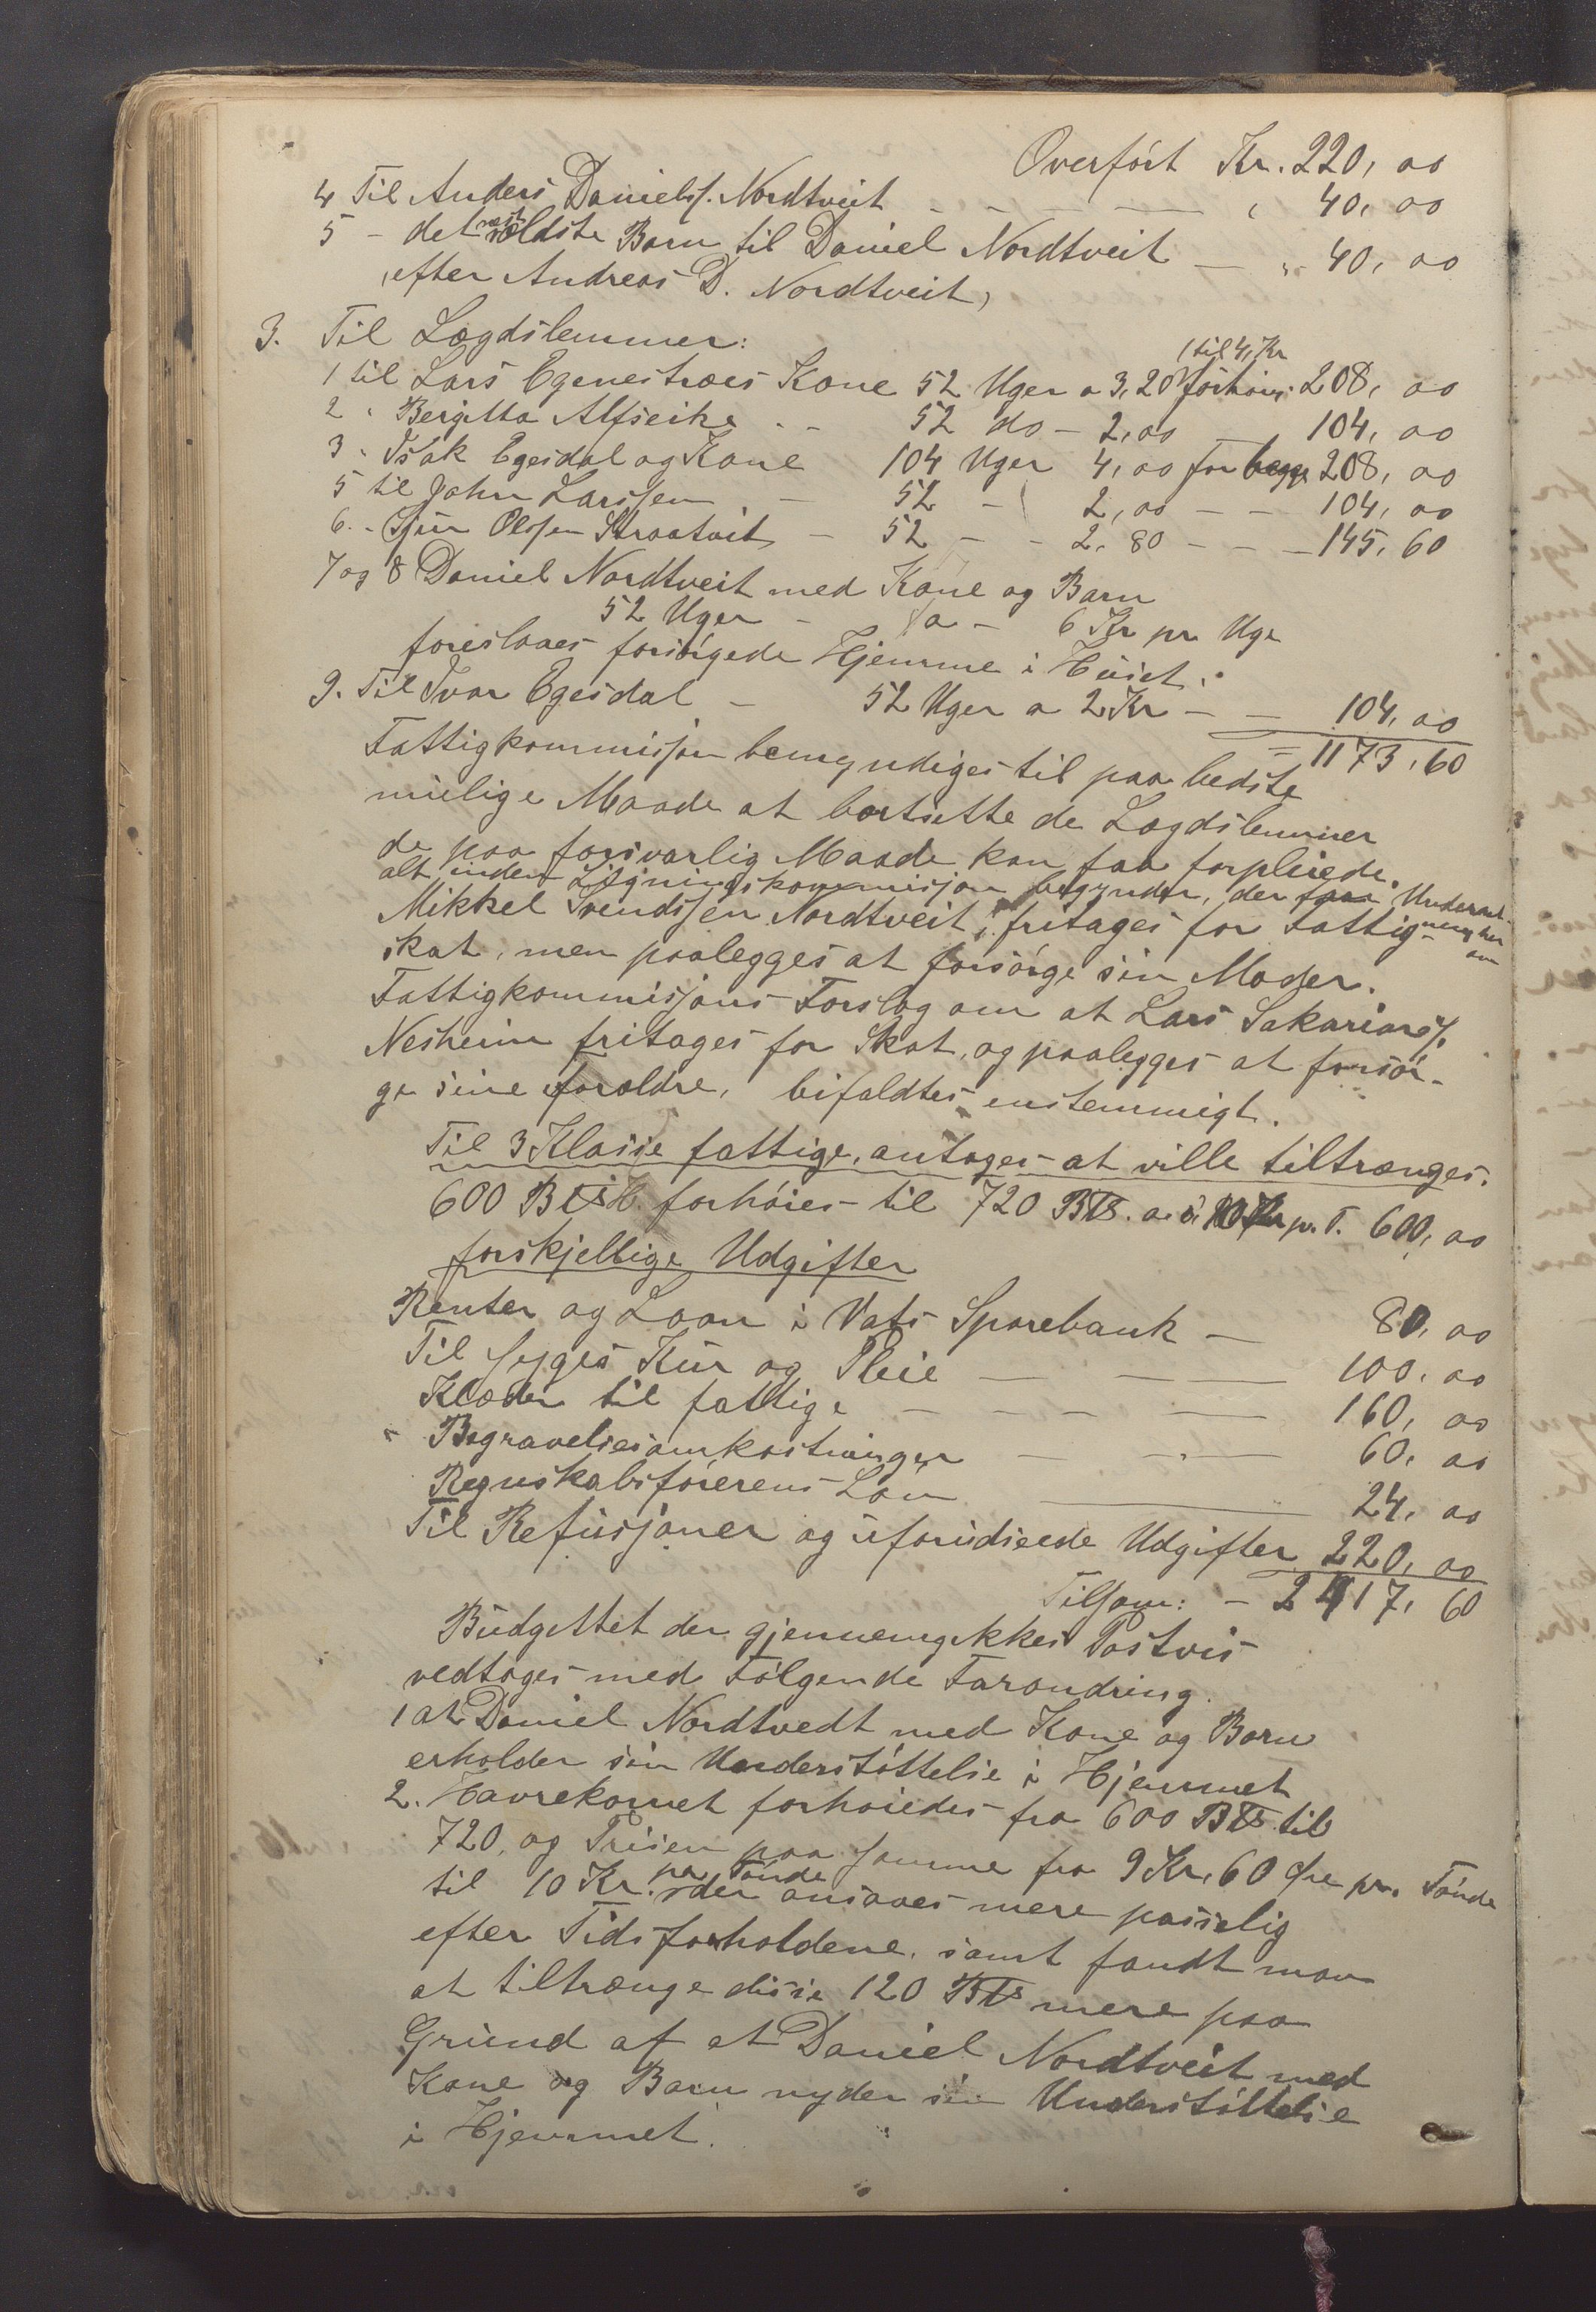 Overført Kr. 220, 00
4 Til Anders Daniels. Nordtveit - - - — " 40, 00
5 - det næstældste Barn til Daniel Nordtveit — " 40, 00
(efter Andreas D. Nordtveit)
3. Til Lægdslemmer:
1 til Lars Egenestræs Kone 52 Uger a 3,20 (til 4, Kr forhøies 208, 00
2 " Bergitta Alfseike - - 52 do - 2,00 104, 00
3 " Isak Egesdal og Kone 104 Uger 4,00 for begge 208, 00
5 til John Larssen - 52 - 2,00 - - 104, 00
6. - Sjur Olssen Straatveit - 52 - - 2. 80 - - - 145, 60
7 og 8 Daniel Nordtveit med Kone og Barn
52 Uger - a - 6 Kr pr Uge
foreslaaes forsørgede Hjemme i Huset.
9. Til Ivar Egesdal - 52 Uger a 2 Kr - - 104, 00
= 1173, 60
Fattigkommisjon bemyndiges til paa bedste
mulige Maade at bortsette de Lægdslemmer
de paa forsvarlig Maade kan faa forpleiede.
alt inden Ligningskommisjon begynder, der faar Underretning her om
Mikkel Svendssen Nordtveit, fritages for Fattig-
skat, men paalegges at forsørge sin Moder.
Fattigkommisjons Forslag om at Lars Sakarias.
Nesheim fritages for Skat, og paalegges at forsør-
ge sine foreldre, bifaldtes enstemmigt.
Til 3 Klasse fattige, antages at ville tiltrænges.
600 B forhøies til 720 B a 10 Kr pr. T. 600, 00
forskjellige Udgifter
Renter og Laan i Vats Sparebank — 80, 00
Til Syges Kur og Pleie — — — 100. 00
Klæder til fattige - - - — 160, 00
" Begravelsesomkostninger — - — 60, 00
Regnskabsførerens Løn — 24, 00
Til Refusjoner og uforudseede Udgifter 220, 00
Tilsam: - 2417, 60
Budgettet der gjennemgikkes Postvis
vedtoges med Følgende Forandring.
1 at Daniel Nordtvedt med Kone og Barn
erholder sin Understøttelse i Hjemmet
2. Havrekornet forhøiedes fra 600 B til
720, og Prisen paa samme fra 9 Kr, 60 Øre pr. Tønde
til 10 Kr. pr Tønde der ansaaes mere passelig
efter Tidsforholdene, samt fandt man
at tiltrænge disse 120 B mere paa
Grund af at Daniel Nordtveit med
Kone og Barn nyder sin Understøttelse
i Hjemmet.